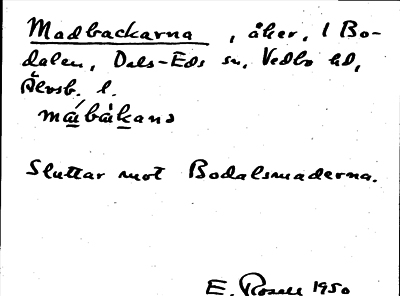 Madbackarna, åker, 1 Bo-
dalen, Dals-Eds sn, Vedbo hd,
Älvsb. l.
mábàkana
Sluttar mot Bodalsmaderna.
E. Rosell 1950